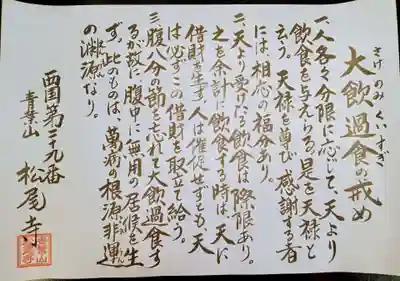 大飲過食の戒め
さけのみ くいすぎ
一、人各々分限に応じて、天より
飲食を与えらる。是を天禄と
云う。天禄を尊び感謝する者
には、相応の福分あり。
二、天より受けたる飲食は際限あり。
之を余計に飲食する時は、天に
借財を生ず。人は催促せずとも天
は必ずこの借財を取立て給う。
三、腹八分の節を忘れて大飲過食す
るが故に腹中に無用の居候を生
ず。此のものは、萬病の根源非運
の淵源なり。
西国第二十九番
青葉山 松尾寺